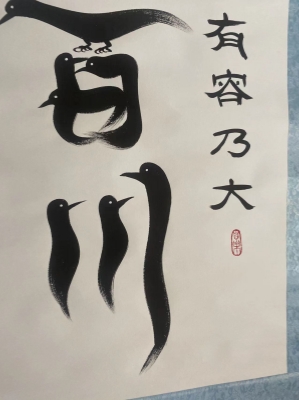 百川
有容乃大